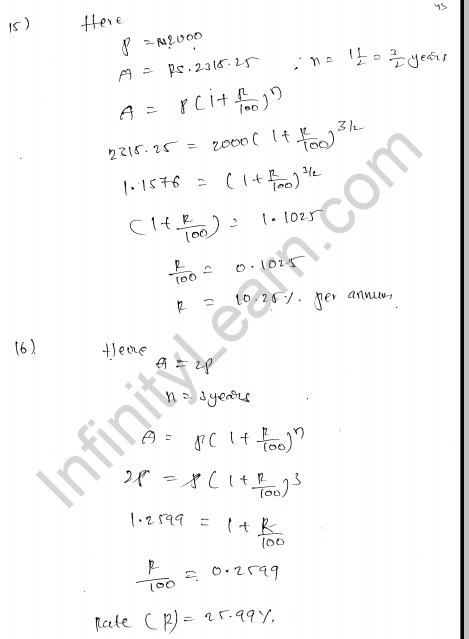 45
15) Here
P = Rs2000
A = Rs. 2315.25 ; n = 1 1/2 = 3/2 years
A = P(1+R/100)^n
2315.25 = 2000(1+R/100)^3/2
1.1576 = (1+R/100)^3/2
(1+R/100) = 1.1025
R/100 = 0.1025
R = 10.25%. per annum.
16) Here
A = 2P
n = 3years
A = P(1+R/100)^n
2P = P(1+R/100)^3
1.2599 = 1+R/100
R/100 = 0.2599
Rate (R) = 25.99%.
InfinityLearn.com